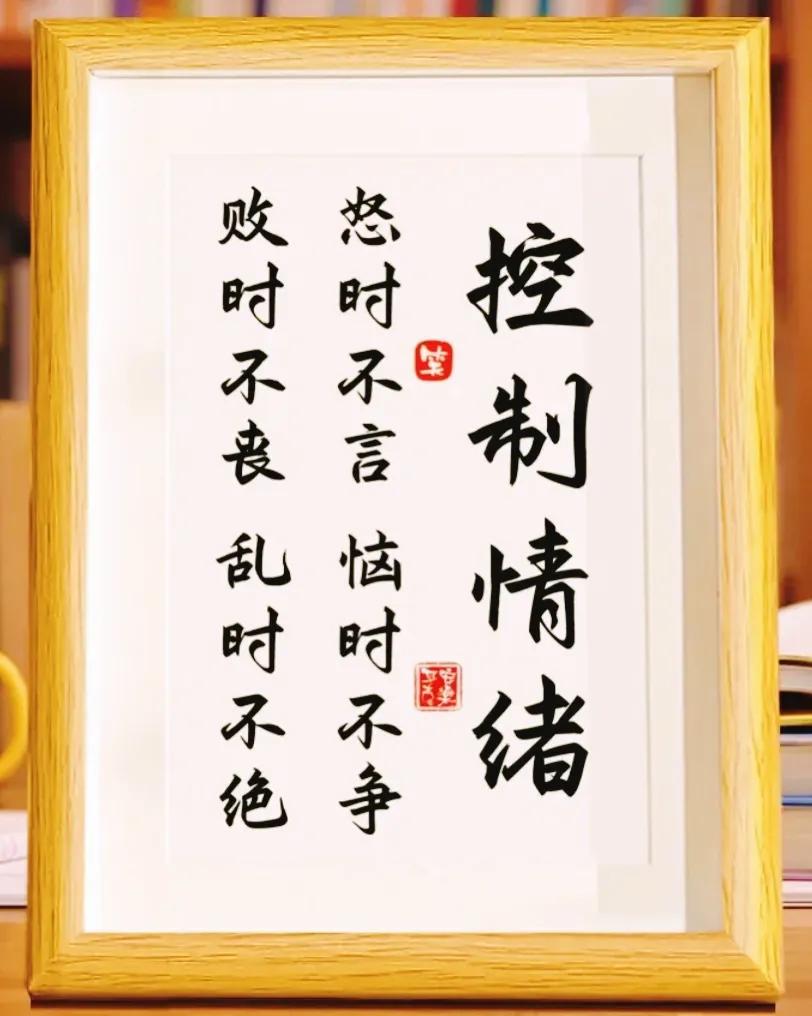 控制情绪
笑
怒时不言 恼时不争
败时不丧 乱时不绝